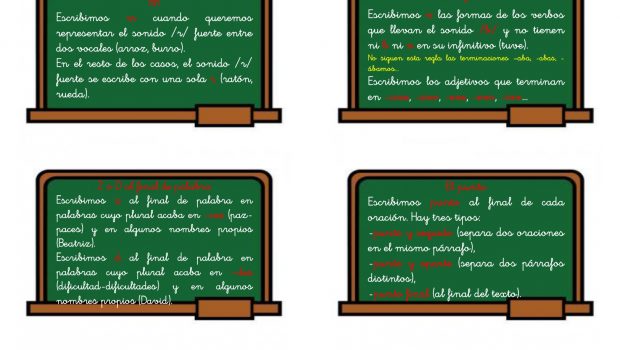 rr
Escribimos rr cuando queremos
representar el sonido /r/ fuerte entre
dos vocales (arroz, burro).
En el resto de los casos, el sonido /r/
fuerte se escribe con una sola r (ratón,
rueda).
Escribimos v las formas de los verbos
que llevan el sonido /b/ y no tienen
ni b ni v en su infinitivo (tuve).
No siguen esta regla las terminaciones -aba, -abas, -
ábamos...
Escribimos los adjetivos que terminan
en
Z o D al final de palabra
Escribimos z al final de palabra en
palabras cuyo plural acaba en -ces (paz-
paces) y en algunos nombres propios
(Beatriz).
Escribimos d al final de palabra en
palabras cuyo plural acaba en -des
(dificultad-dificultades) y en algunos
nombres propios (David).
El punto
Escribimos punto al final de cada
oración. Hay tres tipos:
-punto y seguido (separa dos oraciones
en el mismo párrafo),
-punto y aparte (separa dos párrafos
distintos),
-punto final (al final del texto).